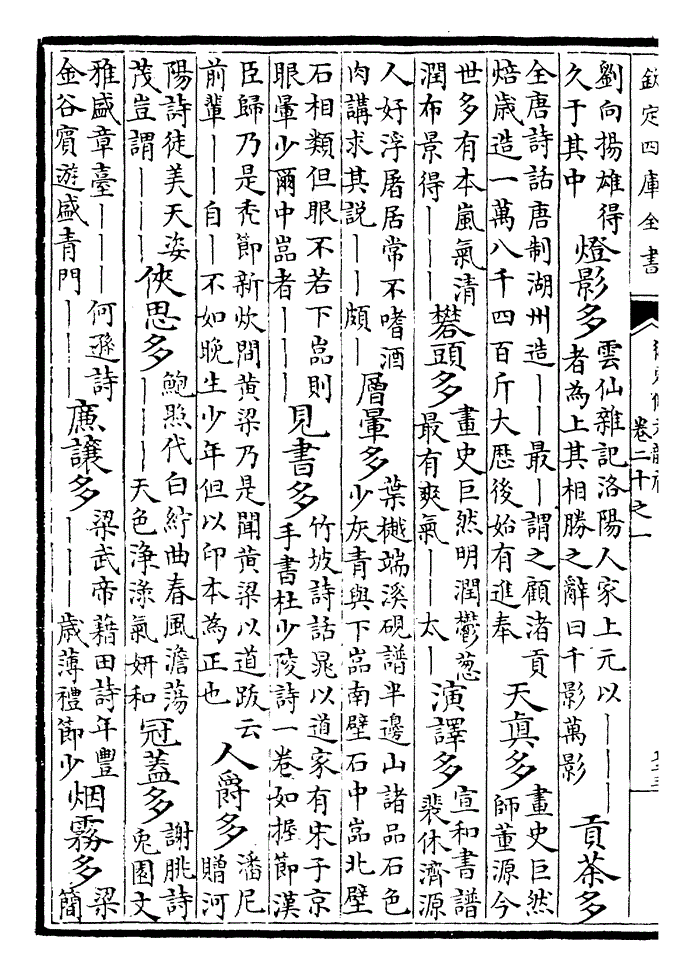 欽定四庫全書
卷二十之一
劉向揚雄得
久于其中
燈影多
雲仙雜記洛陽人家上元以———
者為上其相勝之辭曰千影萬影
貢茶多
全唐詩話唐制湖州造——最—謂之顧渚貢
焙歲造一萬八千四百斤大厯後始有進奉
天真多
畫史巨然
師董源今
世多有本嵐氣清
潤布景得———
礬頭多
畫史巨然明潤鬱葱
最有爽氣——太—
演譯多
宣和書譜
裴休濟源
人好浮屠居常不嗜酒
肉講求其説——頗—
層暈多
葉樾端溪硯譜半邊山諸品石色
少灰青與下嵓南壁石中嵓北壁
石相類但眼不若下嵓則
眼暈少爾中嵓者———
見書多
竹坡詩話晁以道家有宋子京
手書杜少陵詩一卷如握節漢
臣歸乃是秃節新炊間黄梁乃是聞黄梁以道跋云
前輩——自—不如晚生少年但以印本為正也
人爵多
潘尼
贈河
陽詩徒美天姿
茂豈謂———
俠思多
鮑照代白紵曲春風澹蕩
———天色浄渌氣妍和
冠蓋多
謝朓詩
兎園文
雅盛章臺———何遜詩
金谷賓遊盛青門———
廉讓多
梁武帝藉田詩年豐
———歲薄禮節少
烟霧多
梁
簡